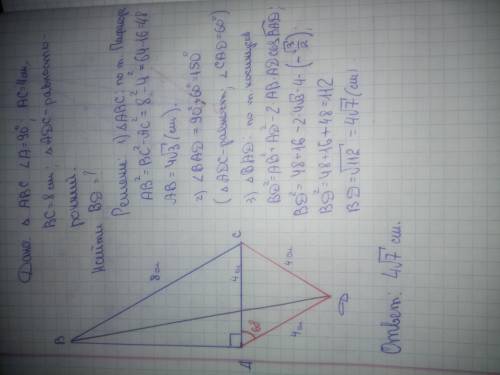 Дано: △ ABC ∠A=90°; AC=4см,
BC=8см △ADC-равносто-
ронний.
Найти BD-?
Решение: 1) △ABC; по т. Пифагора
AB²=BC²-AC²=8²-4²=64-16=48
AB=4√3(см).
2) ∠BAD=90°+60°=150°
(△ADC-равност, ∠CAD=60°)
3) △BAD: по т. косинусов
BD²=AB²+AD²-2·AB·AD·cos∠BAD;
BD²=48+16-2·4√3·4·(-√3/2);
BD²=48+16+48=112
BD=√112=4√7(см)
B
8см
C
4см
4см
A
60°
4см
D
Ответ: 4√7 см.